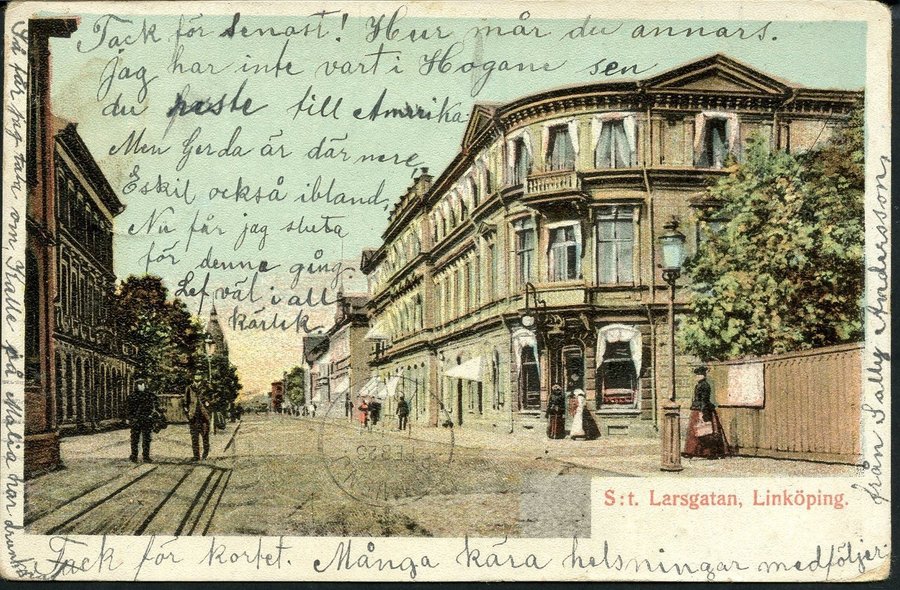 Tack för senast! Hur mår du annars.
jag har inte vart i Hogane sen
du reste till Amrrika.
Men Gerda är där nere
Eskil också ibland,
Nu får jag sluta
för denna gång
Lef väl i all
kärlek.
Så får jag tala om Kalle på Malia har
S:t. Larsgatan, Linköping.
från Sally Andersson
Tack för kortet. Många kära helsningar medföljer